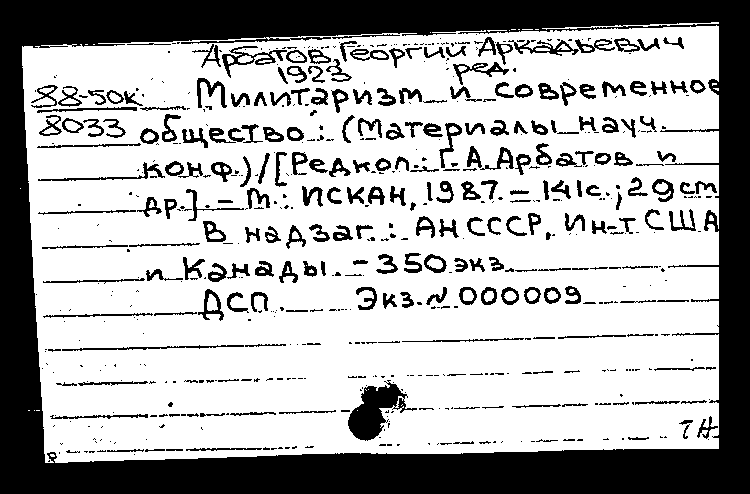 Арбатов, Георгий Аркадьевич
1923 ред.
88-50к Милитаризм и современное
8033 общество: (Материалы науч.
конф.)/[Редкол.: Г.А. Арбатов и
др.]. - М.: ИСКАН, 1987. - 141с.; 29 cm
В надзаг.: АН СССР, Ин-т США
и Канады. - 350 экз.
ДСП. Экз. № 000009
ТН